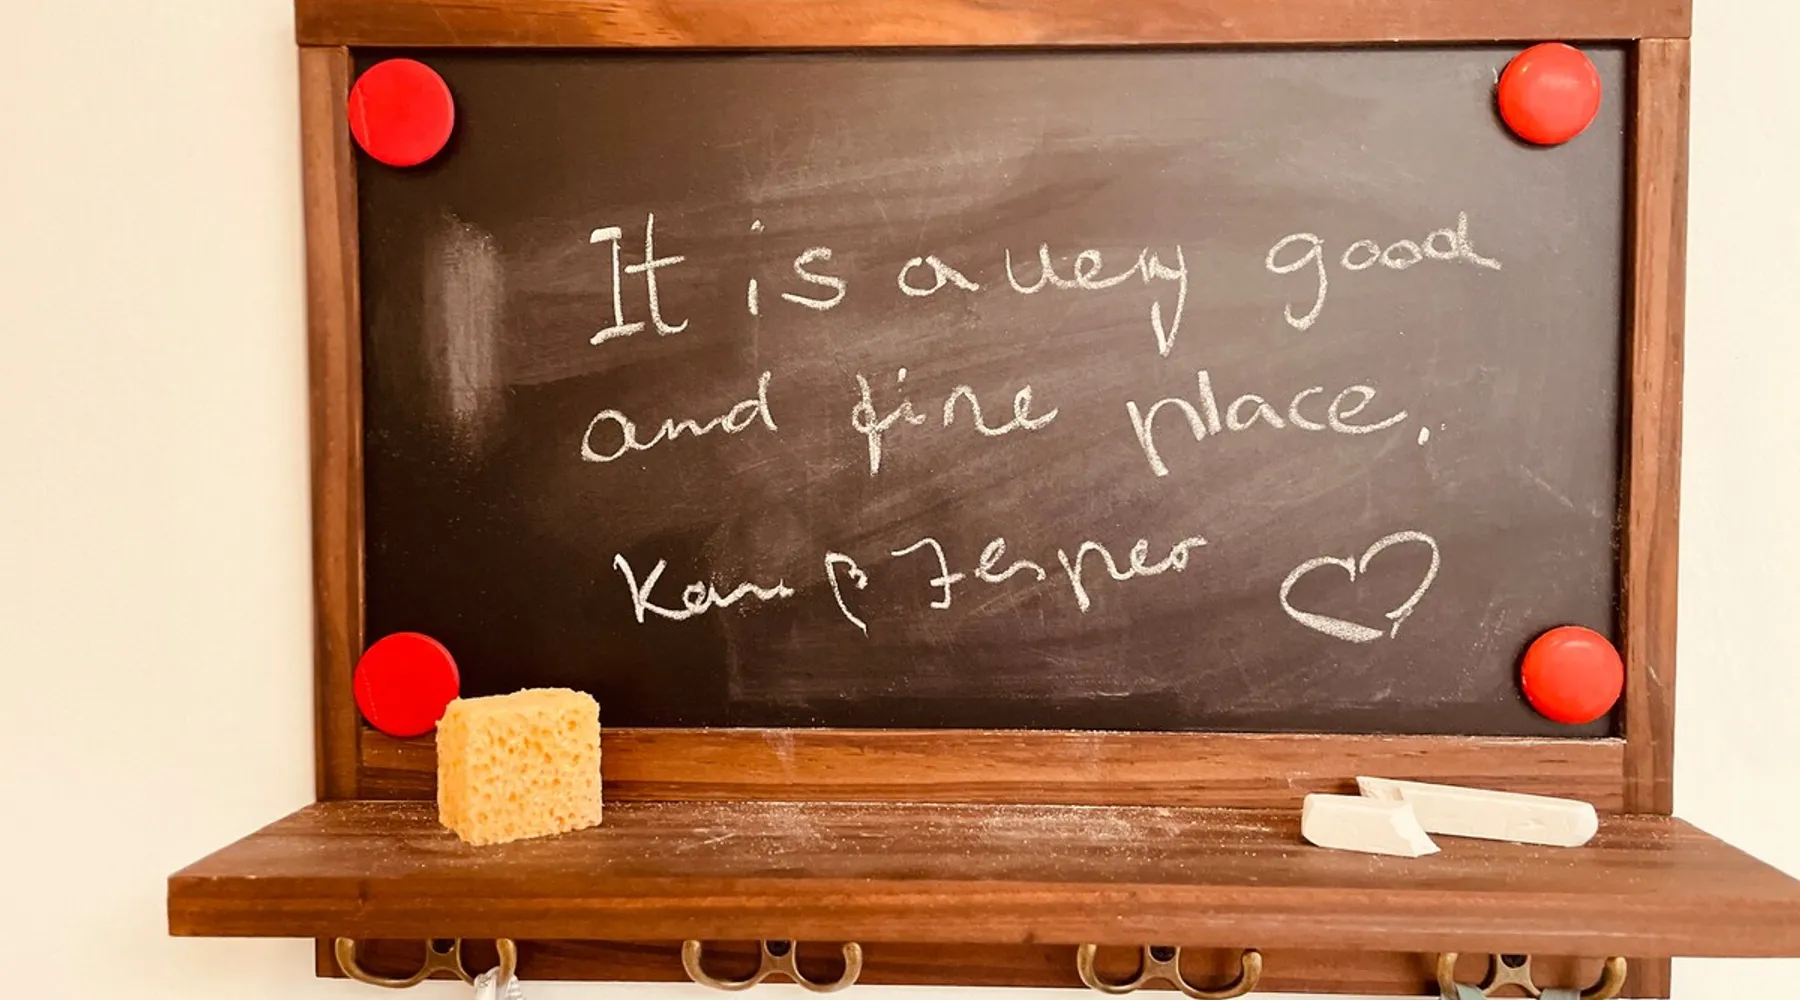 It is a very good
and fine place.
& Jesper ♡